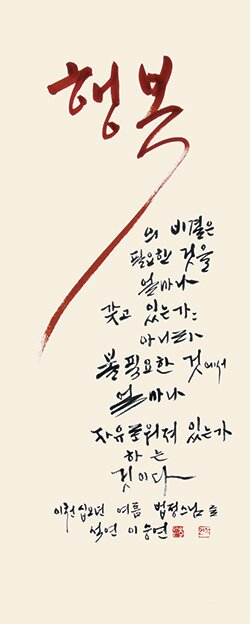 행복
의 비결은
필요한 것을
얼마나
갖고 있는가는
아니라
불필요한 것에서
얼마나
자유로워져 있는가
하는
것이다
이천십오년 여름 법정스님 글
석연 이승연